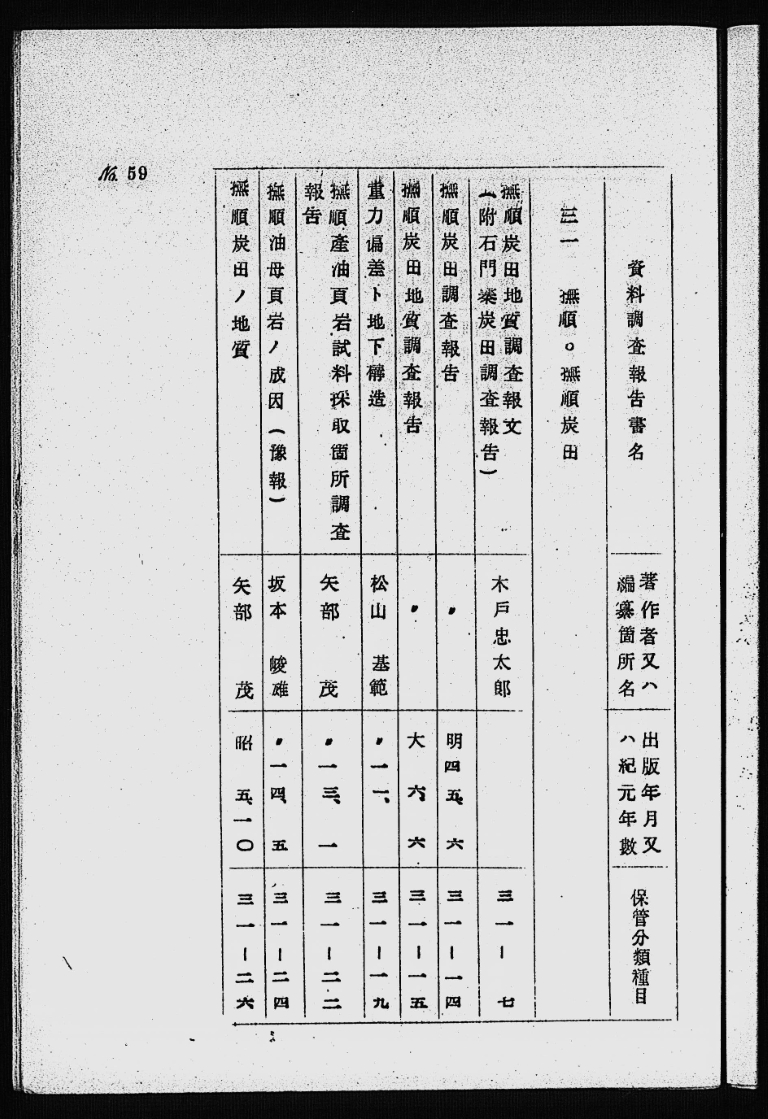 No. 59
資料調査報告書名
著作者又ハ
編纂箇所名
出版年月又
ハ紀元年數
保管分類種目
三一 撫順。撫順炭田
撫順炭田地質調査報文
(附石門寨炭田調査報告)
木戸忠太郎
三一—七
撫順炭田調査報告
〃
明四五、六
三一—一四
撫順炭田地質調査報告
〃
大六、六
三一—一五
重力偏差ト地下構造
松山基範
〃一一、
三一—一九
撫順産油頁岩試料採取箇所調査
報告
矢部茂
〃一三、一
三一—二二
撫順油母頁岩ノ成因(豫報)
坂本峻雄
〃一四、五
三一—二四
撫順炭田ノ地質
矢部茂
昭五、一〇
三一—二六